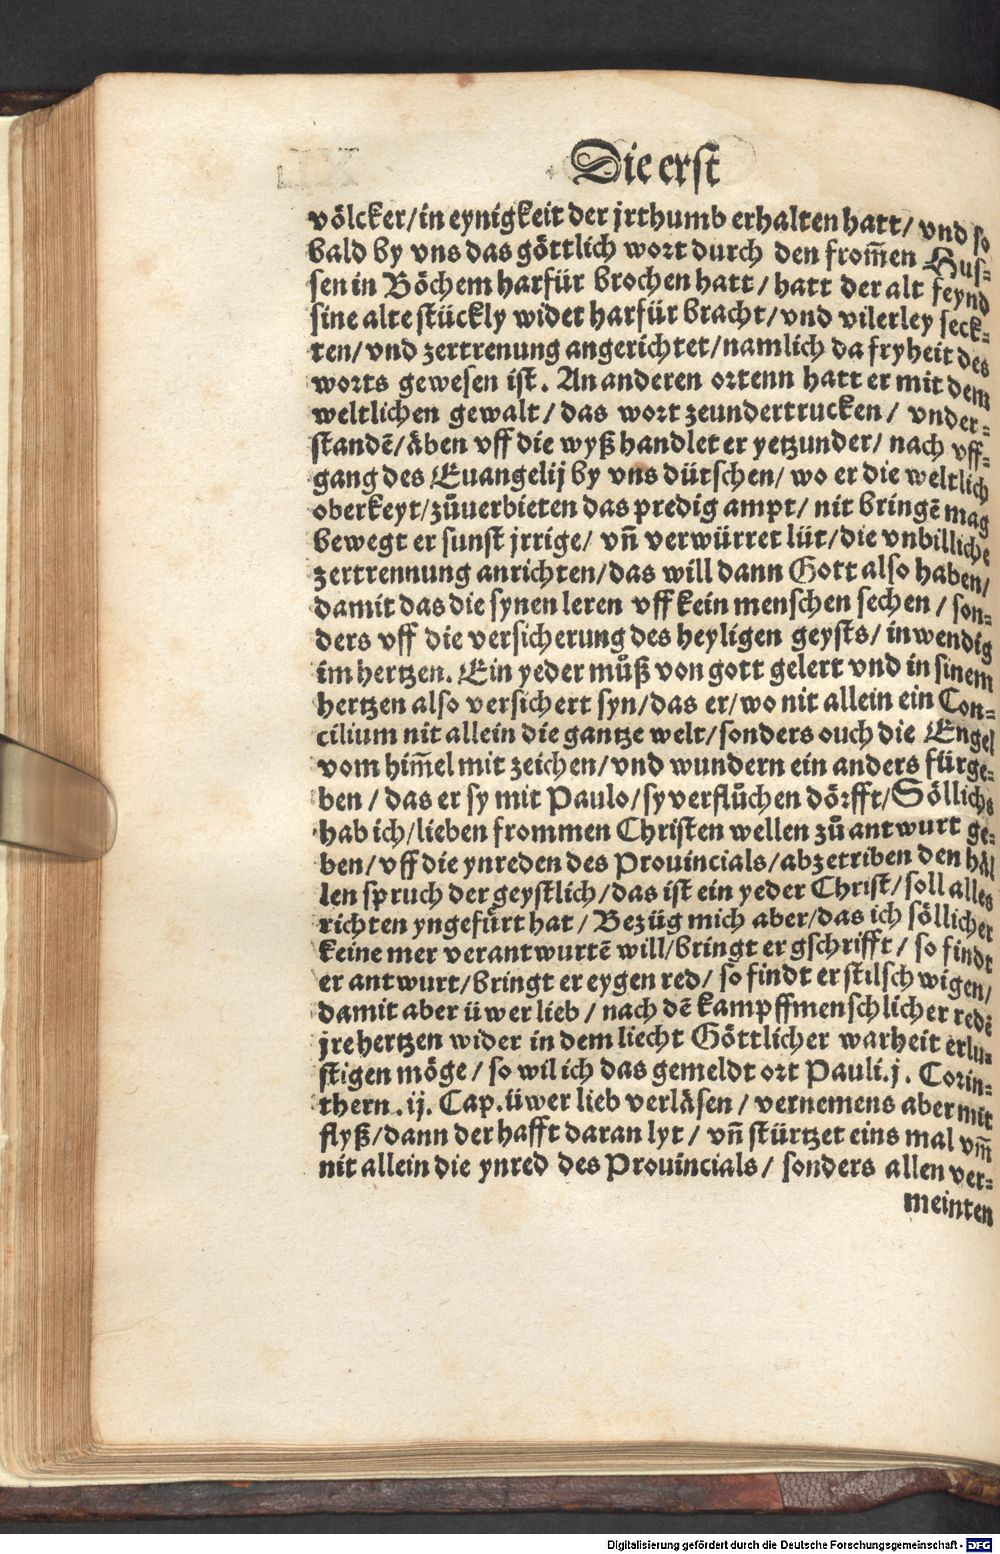 Die erst
völcker/in eynigkeit der jrthumb erhalten hatt/ vnd so
bald by vns das göttlich wort durch den from̃en Hus⸗
sen in Böchem harfür brochen hatt/ hatt der alt feynd
sine alte stückly wider harfür bracht/vnd vilerley seck⸗
ten/vnd zertrenung angerichtet/namlich da fryheit des
worts gewesen ist. An anderen ortenn hatt er mit dem
weltlichen gewalt/das wort zeundertrucken/ vnder⸗
standẽ/äben vff die wyß handlet er yetzunder/ nach vff⸗
gang des Euangelij by vns dütschen/ wo er die weltlich
oberkeyt/zůuerbieten das predig ampt/ nit bringẽ mag
bewegt er sunst jrrige/ vñ verwürret lüt/die vnbilliche
zertrennung anrichten/das will dann Gott also haben/
damit das die synen leren vff kein menschen sechen/ son⸗
ders vff die versicherung des heyligen geysts/inwendig
im hertzen. Ein yeder můß von gott gelert vnd in sinem
hertzen also versichert syn/das er/wo nit allein ein Con⸗
cilium nit allein die gantze welt/sonders ouch die Engel
vom him̃el mit zeichen/vnd wundern ein anders fürge⸗
ben/das er sy mit Paulo/sy verflůchen dörfft/Söllichs
hab ich/lieben frommen Christen wellen zů antwurt ge⸗
ben/vff die ynreden des Prouincials/abzetriben den häl
len spruch der geystlich/das ist ein yeder Christ/soll alles
richten yngefürt hat/ Bezüg mich aber/das ich söllicher
keine mer verantwurtẽ will/bringt er gschrifft/ so findt
er antwurt/bringt er eygen red/ so findt er stilschwigen/
damit aber üwer lieb/ nach dẽ kampff menschlicher redẽ
jre hertzen wider in dem liecht Göttlicher warheit erlu⸗
stigen möge/ so wil ich das gemeldt ort Pauli.j. Corin⸗
thern.ij. Cap.üwer lieb verläsen/ vernemens aber mit
flyß/dann der hafft daran lyt/ vñ stürtzet eins mal vm̃
nit allein die ynred des Prouincials/ sonders allen ver⸗
meinten
Digitalisierung gefördert durch die Deutsche Forschungsgemeinschaft - DFG